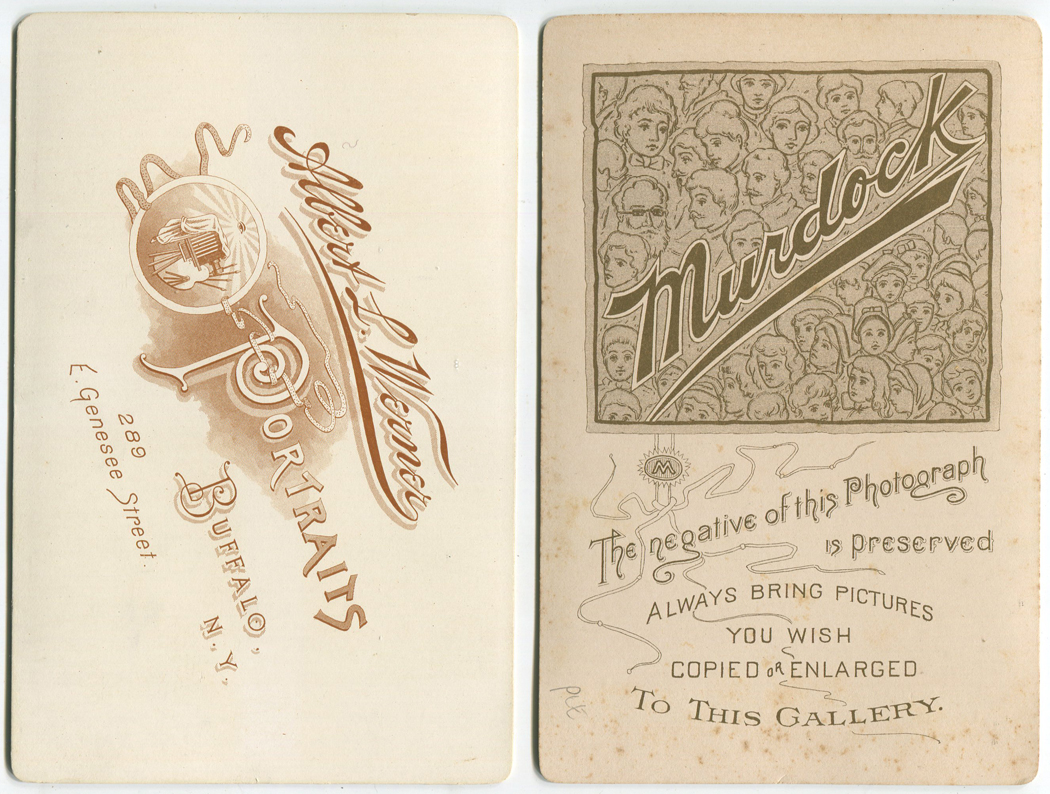 Albert L. Werner
PORTRAITS
289
E. Genesee Street.
BUFFALO,
N.Y.
Murdock
M
The negative of this Photograph
is preserved
ALWAYS BRING PICTURES
YOU WISH
COPIED OR ENLARGED
TO THIS GALLERY.